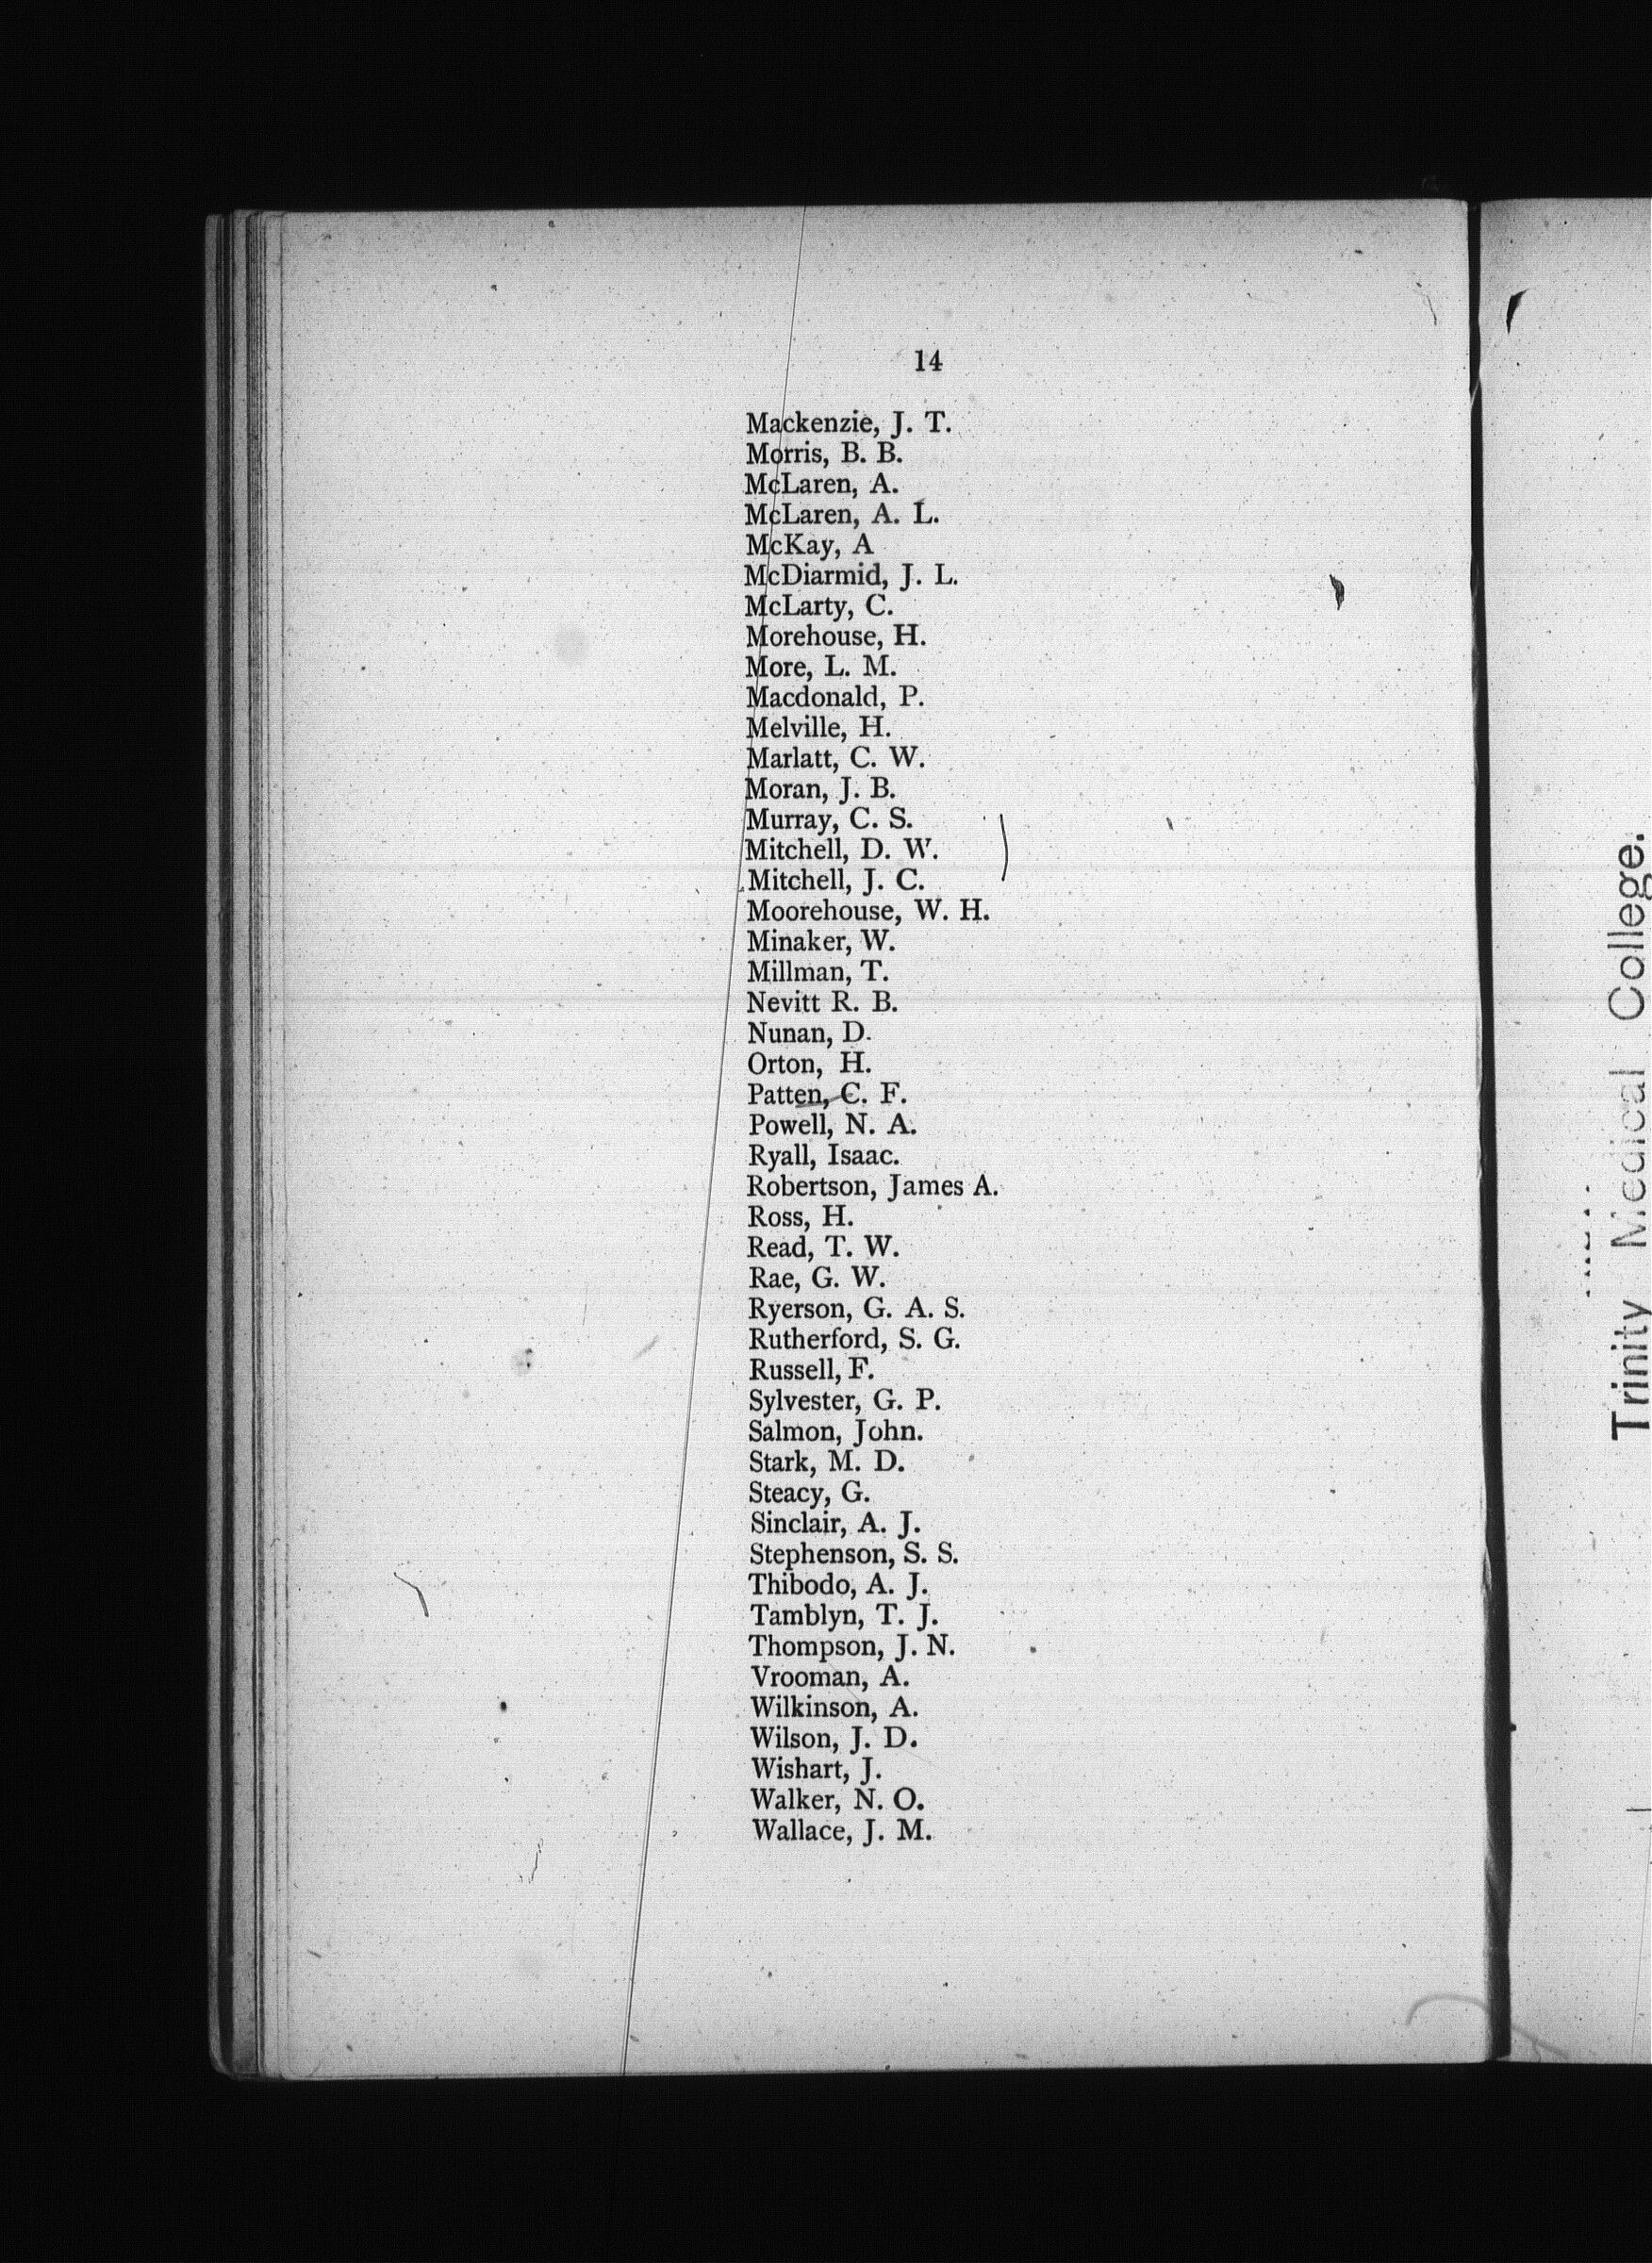 14
Mackenzie, J. T.
Morris, B. B.
McLaren, A.
McLaren, A. L.
McKay, A
McDiarmid, J. L.
McLarty, C.
Morehouse, H.
More, L. M.
Macdonald, P.
Melville, H.
Marlatt, C. W.
Moran, J. B.
Murray, C. S.
Mitchell, D. W.
Mitchell, J. C.
Moorehouse, W. H.
Minaker, W.
Millman, T.
Nevitt R. B.
Nunan, D.
Orton, H.
Patten, C. F.
Powell, N. A.
Ryall, Isaac.
Robertson, James A.
Ross, H.
Read, T. W.
Rae, G. W.
Ryerson, G. A. S.
Rutherford, S. G.
Russell, F.
Sylvester, G. P.
Salmon, John.
Stark, M. D.
Steacy, G.
Sinclair, A. J.
Stephenson, S. S.
Thibodo, A. J.
Tamblyn, T. J.
Thompson, J. N.
Vrooman, A.
Wilkinson, A.
Wilson, J. D.
Wishart, J.
Walker, N. O.
Wallace, J. M.
Trinity Medical College.